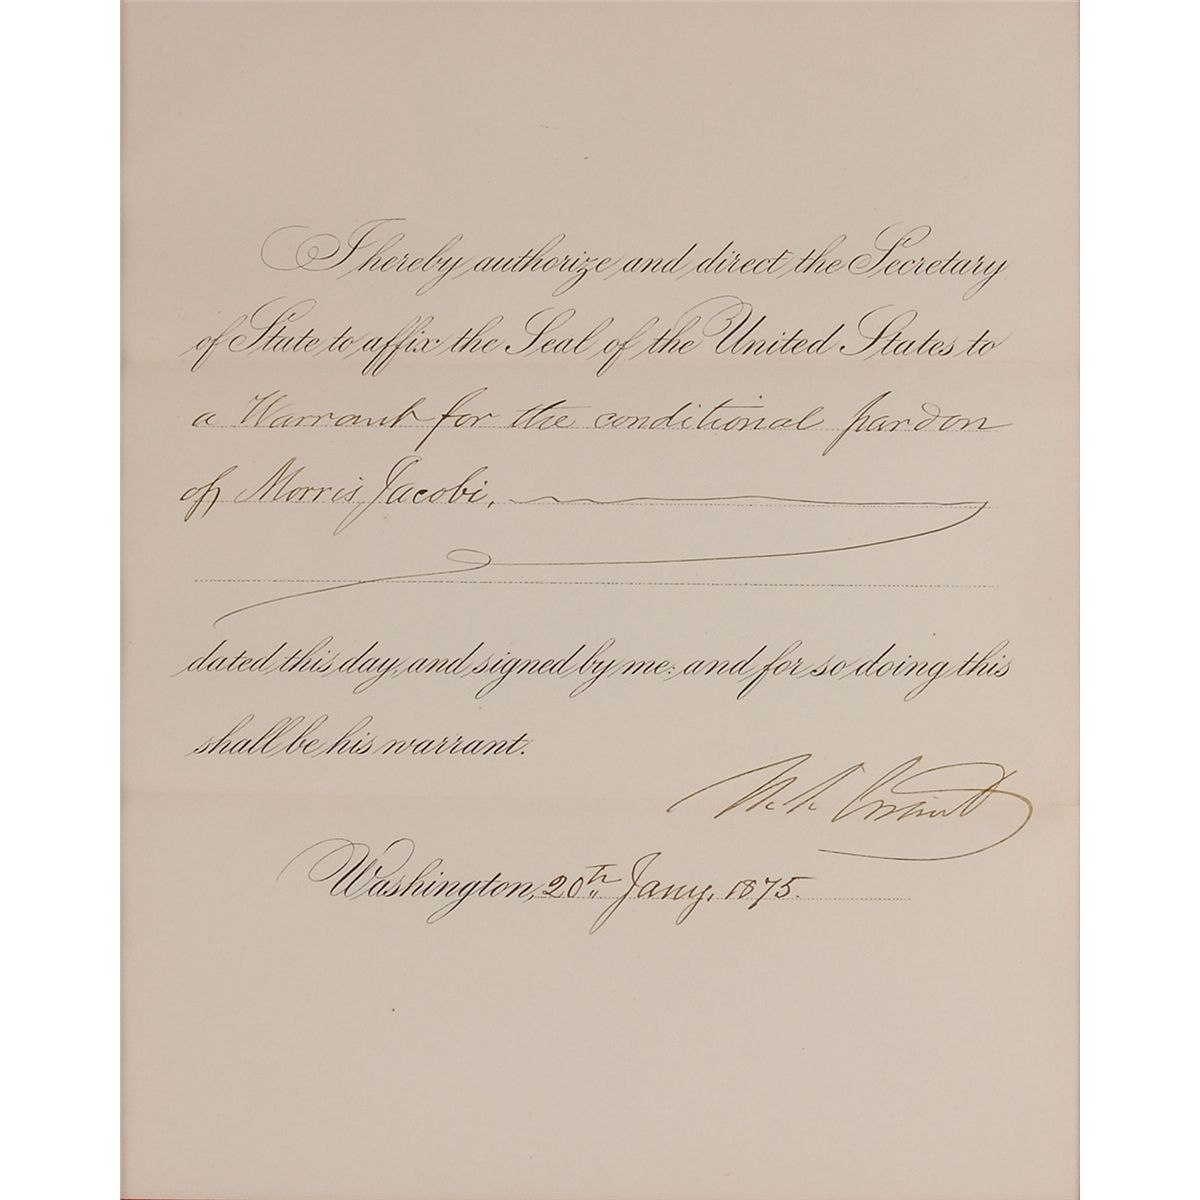 I hereby authorize and direct the Secretary
of State to affix the Seal of the United States to
a Warrant for the conditional pardon
of Morris Jacobi.
dated this day, and signed by me: and for so doing this
shall be his warrant.
U. S. Grant
Washington, 20th Jany, 1875.